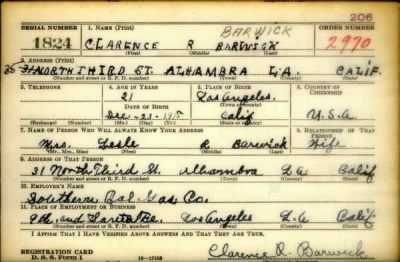 206
SERIAL NUMBER 1. NAME (Print) BARWICK ORDER NUMBER
1824 CLARENCE R BARWICK 2970
(First) (Middle) (Last)
2. ADDRESS (Print)
31 NORTH THIRD ST. ALHAMBRA L.A. CALIF.
(Number and street or R. F. D. number) (Town) (County) (State)
3. TELEPHONE 4. AGE IN YEARS 5. PLACE OF BIRTH 6. COUNTRY OF CITIZENSHIP
21 Los Angeles
DATE OF BIRTH (Town or county)
Dec-23- Calif U.S.A
(Exchange) (Number) (Mo.) (Day) (Yr.) (State or country)
7. NAME OF PERSON WHO WILL ALWAYS KNOW YOUR ADDRESS 8. RELATIONSHIP OF THAT PERSON
Mrs. R Barwick Wife
(Mr., Mrs., Miss) (First) (Middle) (Last)
9. ADDRESS OF THAT PERSON
31 North Third St. Alhambra L.A. Calif
(Number and street or R. F. D. number) (Town) (County) (State)
10. EMPLOYER'S NAME
Southern Cal. Gas Co.
11. PLACE OF EMPLOYMENT OR BUSINESS
9th and Los Angeles L.A Calif
(Number and street or R. F. D. number) (Town) (County) (State)
I AFFIRM THAT I HAVE VERIFIED ABOVE ANSWERS AND THAT THEY ARE TRUE.
REGISTRATION CARD
D. S. S. Form 1 16-17105 Clarence R. Barwick